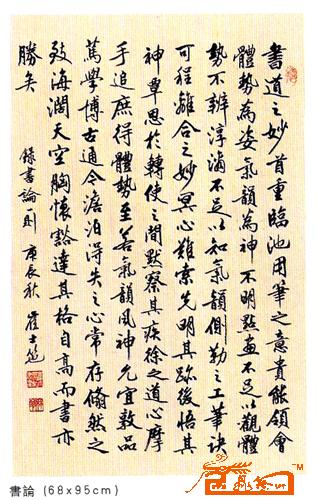 書道之妙首重臨池用筆之意貴能領會
體勢為姿氣韻為神不明點畫不足以觀體
勢不辨淳漓不足以知氣韻側勒之工筆訣
可程離合之妙冥心難索先明其跡後悟其
神覃思於轉使之間默察其疾徐之道心摩
手追庶得體勢至若氣韻風神尤宜敦品
篤學博古通今澹泊得失之心常存翛然之
致海濶天空胸懷豁達其格自高而書亦
勝矣
錄書論一則 庚辰秋 崔士
書論 (68x95cm)
TM